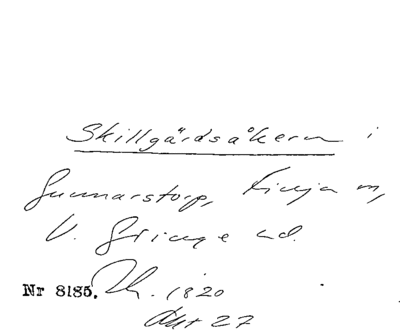 Skillgårdsåkern i
Gunnarstorp, Finja sn,
V. Göinge hd.
Nr 8185. Th. 1820
Akt 27